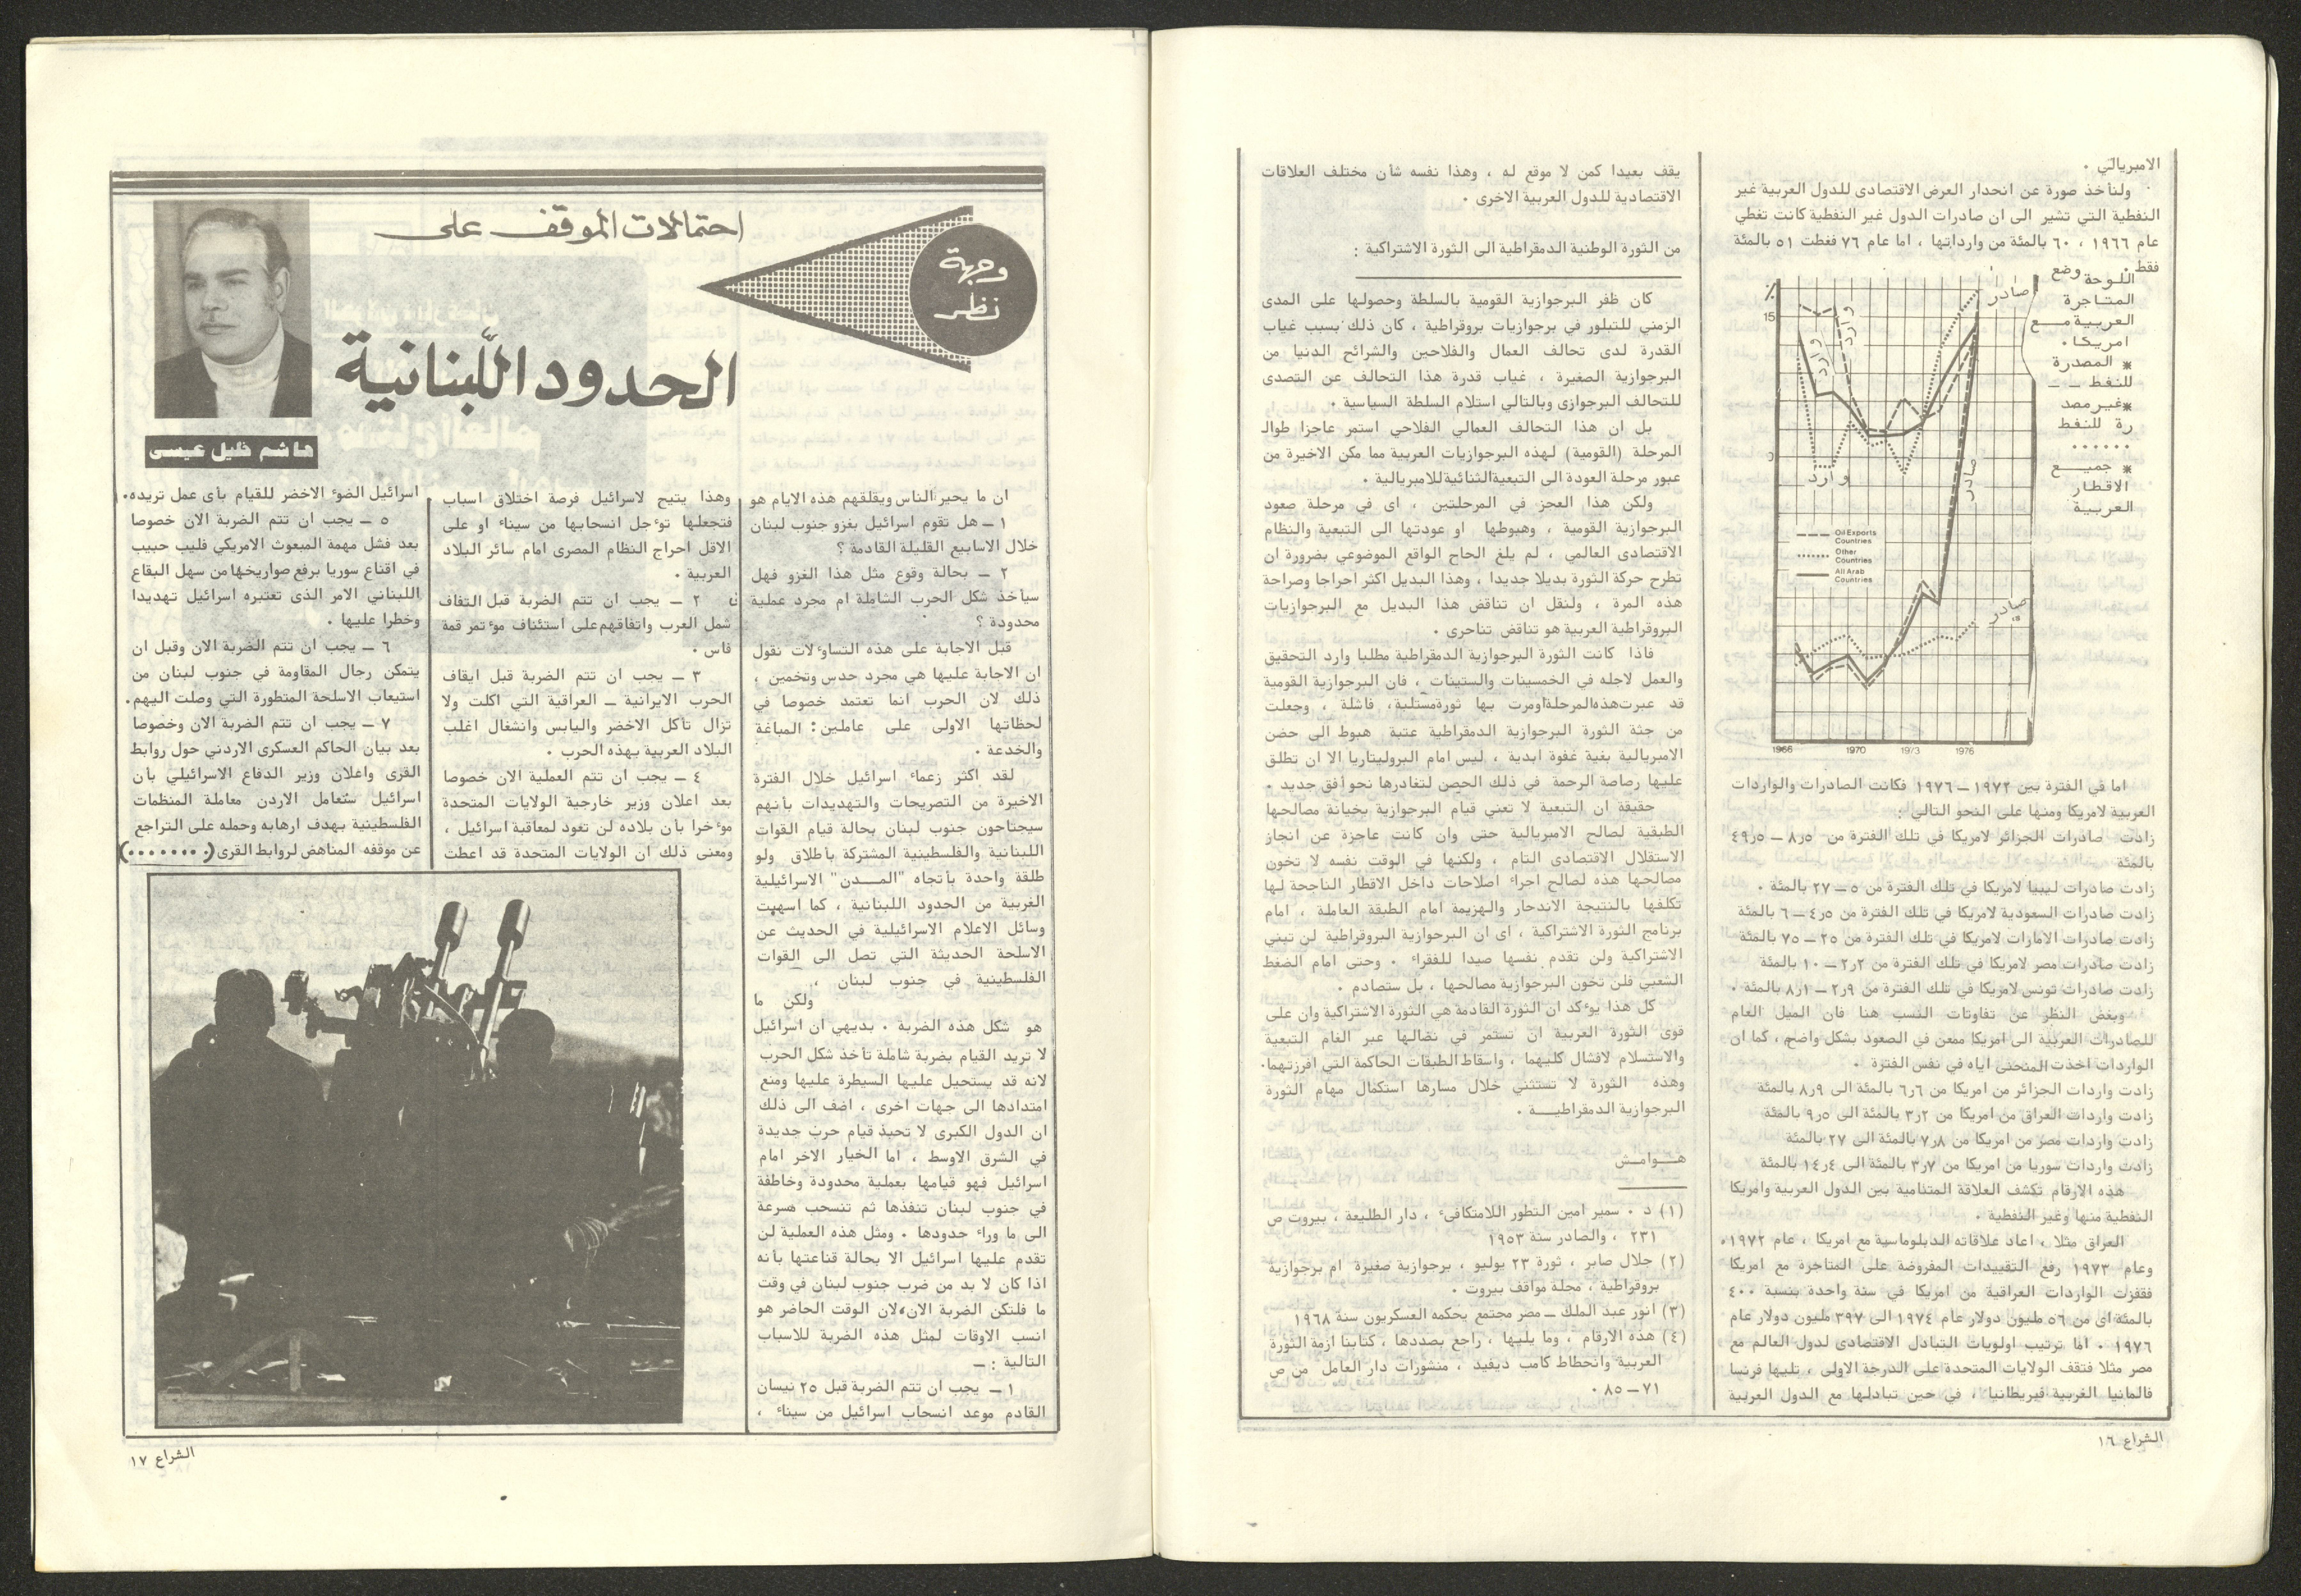 الامبريالي .
ولنأخذ صورة عن انحدار العرض الاقتصادى للدول العربية غير
النفطية التي تشير الى ان صادرات الدول غير النفطية كانت تغطي
عام ١٩٦٦ ، ٦٠ بالمئة من وارداتها ، اما عام ٧٦ فغطت ٥١ بالمئة
فقط .
اللوحة وضع
المتاجرة
العربية مــع
امريكا .
* المصدرة
للنفط ــ ــ
* غير مصد
رة للنفط
......
* جميــع
الاقطار
العربية
%
15
صادر
وارد
وارد
وارد
صادر
صادر
Oil Exports
Countries
Other
Countries
All Arab
Countries
1966 1970 1973 1976
اما في الفترة بين ١٩٧٢ – ١٩٧٦ فكانت الصادرات والواردات
العربية لامريكا ومنها على النحو التالي :
زادت صادرات الجزائر لامريكا في تلك الفترة من ٥ر٨ – ٥ر٤٩
بالمئة
زادت صادرات ليبيا لامريكا في تلك الفترة من ٥ – ٢٧ بالمئة .
زادت صادرات السعودية لامريكا في تلك الفترة من ٥ر٤ – ٦ بالمئة
زادت صادرات الامارات لامريكا في تلك الفترة من ٢٥ – ٧٥ بالمئة
زادت صادرات مصر لامريكا في تلك الفترة من ٢ر٢ – ١٠ بالمئة
زادت صادرات تونس لامريكا في تلك الفترة من ٩ر٢ – ١ر٨ بالمئة .
وبغض النظر عن تفاوتات النسب هنا فان الميل العام
للصادرات العربية الى امريكا ممعن في الصعود بشكل واضح ، كما ان
الواردات اخذت المنحنى اياه في نفس الفترة .
زادت واردات الجزائر من امريكا من ٦ر٦ بالمئة الى ٩ر٨ بالمئة
زادت واردات العراق من امريكا من ٢ر٣ بالمئة الى ٥ر٩ بالمئة
زادت واردات مصر من امريكا من ٨ر٧ بالمئة الى ٢٧ بالمئة
زادت واردات سوريا من امريكا من ٧ر٣ بالمئة الى ٤ر١٤ بالمئة
هذه الارقام تكشف العلاقة المتنامية بين الدول العربية وامريكا
النفطية منها وغير النفطية .
العراق مثلا ، اعاد علاقاته الدبلوماسية مع امريكا ، عام ١٩٧٢،
وعام ١٩٧٣ رفع التقييدات المفروضة على المتاجرة مع امريكا
فقفزت الواردات العراقية من امريكا في سنة واحدة بنسبة ٤٠٠
بالمئة اى من ٥٦ مليون دولار عام ١٩٧٤ الى ٣٩٧ مليون دولار عام
١٩٧٦ . اما ترتيب اولويات التبادل الاقتصادى لدول العالم مع
مصر مثلا فتقف الولايات المتحدة على الدرجة الاولى ، تليها فرنسا
فالمانيا الغربية فبريطانيا ، في حين تبادلها مع الدول العربية
يقف بعيدا كمن لا موقع له ، وهذا نفسه شأن مختلف العلاقات
الاقتصادية للدول العربية الاخرى .
من الثورة الوطنية الدمقراطية الى الثورة الاشتراكية :
كان ظفر البرجوازية القومية بالسلطة وحصولها على المدى
الزمني للتبلور في برجوازيات بروقراطية ، كان ذلك بسبب غياب
القدرة لدى تحالف العمال والفلاحين والشرائح الدنيا من
البرجوازية الصغيرة ، غياب قدرة هذا التحالف عن التصدى
للتحالف البرجوازى وبالتالي استلام السلطة السياسية .
بل ان هذا التحالف العمالي الفلاحي استمر عاجزا طوال
المرحلة (القومية) لهذه البرجوازيات العربية مما مكن الاخيرة من
عبور مرحلة العودة الى التبعية الثنائية للامبريالية .
ولكن هذا العجز في المرحلتين ، اى في مرحلة صعود
البرجوازية القومية ، وهبوطها او عودتها الى التبعية والنظام
الاقتصادى العالمي ، لم يلغ الحاح الواقع الموضوعي بضرورة ان
تطرح حركة الثورة بديلا جديدا ، وهذا البديل اكثر احراجا وصراحة
هذه المرة ، ولنقل ان تناقض هذا البديل مع البرجوازيات
البروقراطية العربية هو تناقض تناحرى .
فاذا كانت الثورة البرجوازية الدمقراطية مطلبا وارد التحقيق
والعمل لاجله في الخمسينات والستينات ، فان البرجوازية القومية
قد عبرت هذه المرحلة او مرت بها ثورة مستلبة، فاشلة ، وجعلت
من جثة الثورة البرجوازية الدمقراطية عتبة هبوط الى حضن
الامبريالية بغية غفوة ابدية ، ليس امام البروليتاريا الا ان تطلق
عليها رصاصة الرحمة في ذلك الحصن لتغادرها نحو أفق جديد .
حقيقة ان التبعية لا تعني قيام البرجوازية بخيانة مصالحها
الطبقية لصالح الامبريالية حتى وان كانت عاجزة عن انجاز
الاستقلال الاقتصادى التام ، ولكنها في الوقت نفسه لا تخون
مصالحها هذه لصالح اجراء اصلاحات داخل الاقطار الناجحة لها
تكلفها بالنتيجة الاندحار والهزيمة امام الطبقة العاملة ، امام
برنامج الثورة الاشتراكية ، اى ان البرجوازية البروقراطية لن تبني
الاشتراكية ولن تقدم نفسها صيدا للفقراء . وحتى امام الضغط
الشعبي فلن تخون البرجوازية مصالحها ، بل ستصادم .
كل هذا يوءكد ان الثورة القادمة هي الثورة الاشتراكية وان على
قوى الثورة العربية ان تستمر في نضالها عبر الغام التبعية
والاستسلام لافشال كليهما ، واسقاط الطبقات الحاكمة التي افرزتهما.
وهذه الثورة لا تستثني خلال مسارها استكمال مهام الثورة
البرجوازية الدمقراطيــة .
هــوامـش
(١) د . سمير امين التطور اللامتكافىء ، دار الطليعة ، بيروت ص
٢٣١ ، والصادر سنة ١٩٥٣
(٢) جلال صابر ، ثورة ٢٣ يوليو ، برجوازية صغيرة ام برجوازية
بروقراطية ، مجلة مواقف بيروت .
(٣) انور عبد الملك – مصر مجتمع يحكمه العسكريون سنة ١٩٦٨
(٤) هذه الارقام ، وما يليها ، راجع بصددها ، كتابنا ازمة الثورة
العربية وانحطاط كامب ديفيد ، منشورات دار العامل من ص
٧١ – ٨٥ .
الشراع ١٦
وجهة
نظر
احتمالات الموقف على
الحدود اللّبنانية
هاشم خليل عيسى
ان ما يحير الناس ويقلقهم هذه الايام هو
١ – هل تقوم اسرائيل بغزو جنوب لبنان
خلال الاسابيع القليلة القادمة ؟
٢ – بحالة وقوع مثل هذا الغزو فهل
سيأخذ شكل الحرب الشاملة ام مجرد عملية
محدودة ؟
قبل الاجابة على هذه التساوءلات نقول
ان الاجابة عليها هي مجرد حدس وتخمين ،
ذلك لان الحرب انما تعتمد خصوصا في
لحظاتها الاولى على عاملين : المباغة
والخدعة .
لقد اكثر زعماء اسرائيل خلال الفترة
الاخيرة من التصريحات والتهديدات بأنهم
سيجتاحون جنوب لبنان بحالة قيام القوات
اللبنانية والفلسطينية المشتركة بأطلاق ولو
طلقة واحدة بأتجاه "المــدن" الاسرائيلية
الغربية من الحدود اللبنانية ، كما اسهبت
وسائل الاعلام الاسرائيلية في الحديث عن
الاسلحة الحديثة التي تصل الى القوات
الفلسطينية في جنوب لبنان ،
ولكن ما
هو شكل هذه الضربة . بديهي ان اسرائيل
لا تريد القيام بضربة شاملة تأخذ شكل الحرب
لانه قد يستحيل عليها السيطرة عليها ومنع
امتدادها الى جهات اخرى ، اضف الى ذلك
ان الدول الكبرى لا تحبذ قيام حرب جديدة
في الشرق الاوسط ، اما الخيار الاخر امام
اسرائيل فهو قيامها بعملية محدودة وخاطفة
في جنوب لبنان تنفذها ثم تنسحب مسرعة
الى ما وراء حدودها . ومثل هذه العملية لن
تقدم عليها اسرائيل الا بحالة قناعتها بأنه
اذا كان لا بد من ضرب جنوب لبنان في وقت
ما فلتكن الضربة الان، لان الوقت الحاضر هو
انسب الاوقات لمثل هذه الضربة للاسباب
التالية : –
١ – يجب ان تتم الضربة قبل ٢٥ نيسان
القادم موعد انسحاب اسرائيل من سيناء ،
وهذا يتيح لاسرائيل فرصة اختلاق اسباب
فتجعلها توءجل انسحابها من سيناء او على
الاقل احراج النظام المصرى امام سائر البلاد
العربية .
٢ – يجب ان تتم الضربة قبل التفاف
شمل العرب واتفاقهم على استئناف موءتمر قمة
فاس .
٣ – يجب ان تتم الضربة قبل ايقاف
الحرب الايرانية – العراقية التي اكلت ولا
تزال تأكل الاخضر واليابس وانشغال اغلب
البلاد العربية بهذه الحرب .
٤ – يجب ان تتم العملية الان خصوصا
بعد اعلان وزير خارجية الولايات المتحدة
موءخرا بأن بلاده لن تعود لمعاقبة اسرائيل ،
ومعنى ذلك ان الولايات المتحدة قد اعطت
اسرائيل الضوء الاخضر للقيام بأى عمل تريده.
٥ – يجب ان تتم الضربة الان خصوصا
بعد فشل مهمة المبعوث الامريكي فليب حبيب
في اقناع سوريا برفع صواريخها من سهل البقاع
اللبناني الامر الذى تعتبره اسرائيل تهديدا
وخطرا عليها .
٦ – يجب ان تتم الضربة الان وقبل ان
يتمكن رجال المقاومة في جنوب لبنان من
استيعاب الاسلحة المتطورة التي وصلت اليهم.
٧ – يجب ان تتم الضربة الان وخصوصا
بعد بيان الحاكم العسكرى الاردني حول روابط
القرى واعلان وزير الدفاع الاسرائيلي بأن
اسرائيل ستعامل الاردن معاملة المنظمات
الفلسطينية بهدف ارهابه وحمله على التراجع
عن موقفه المناهض لروابط القرى (........)
الشراع ١٧